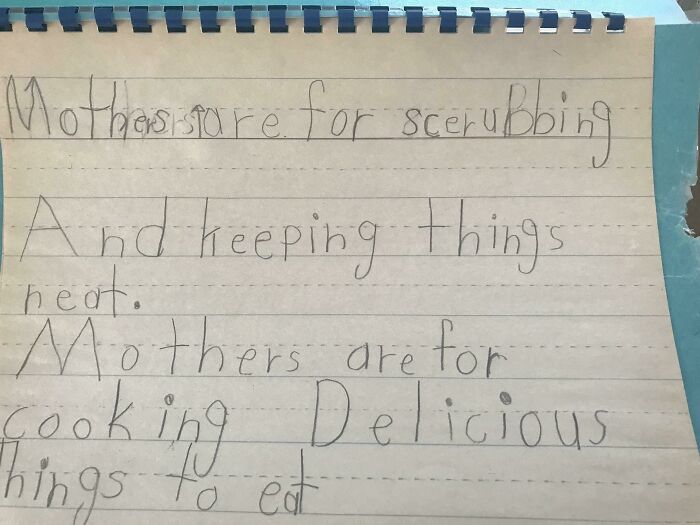 Mothers are for scerubbing
And keeping things
neat.
Mothers are for
cooking Delicious
things to eat